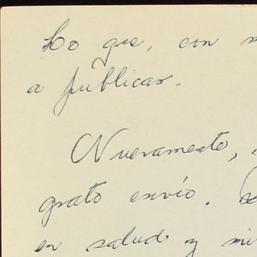 Lo que, con
a publicar.
Nuevamente,
grato envío.
en salud y mi